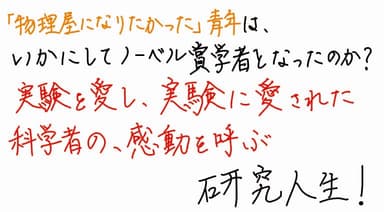 「物理屋になりたかった」青年は、
いかにしてノーベル賞学者となったのか?
実験を愛し、実験に愛された
科学者の、感動を呼ぶ
研究人生!